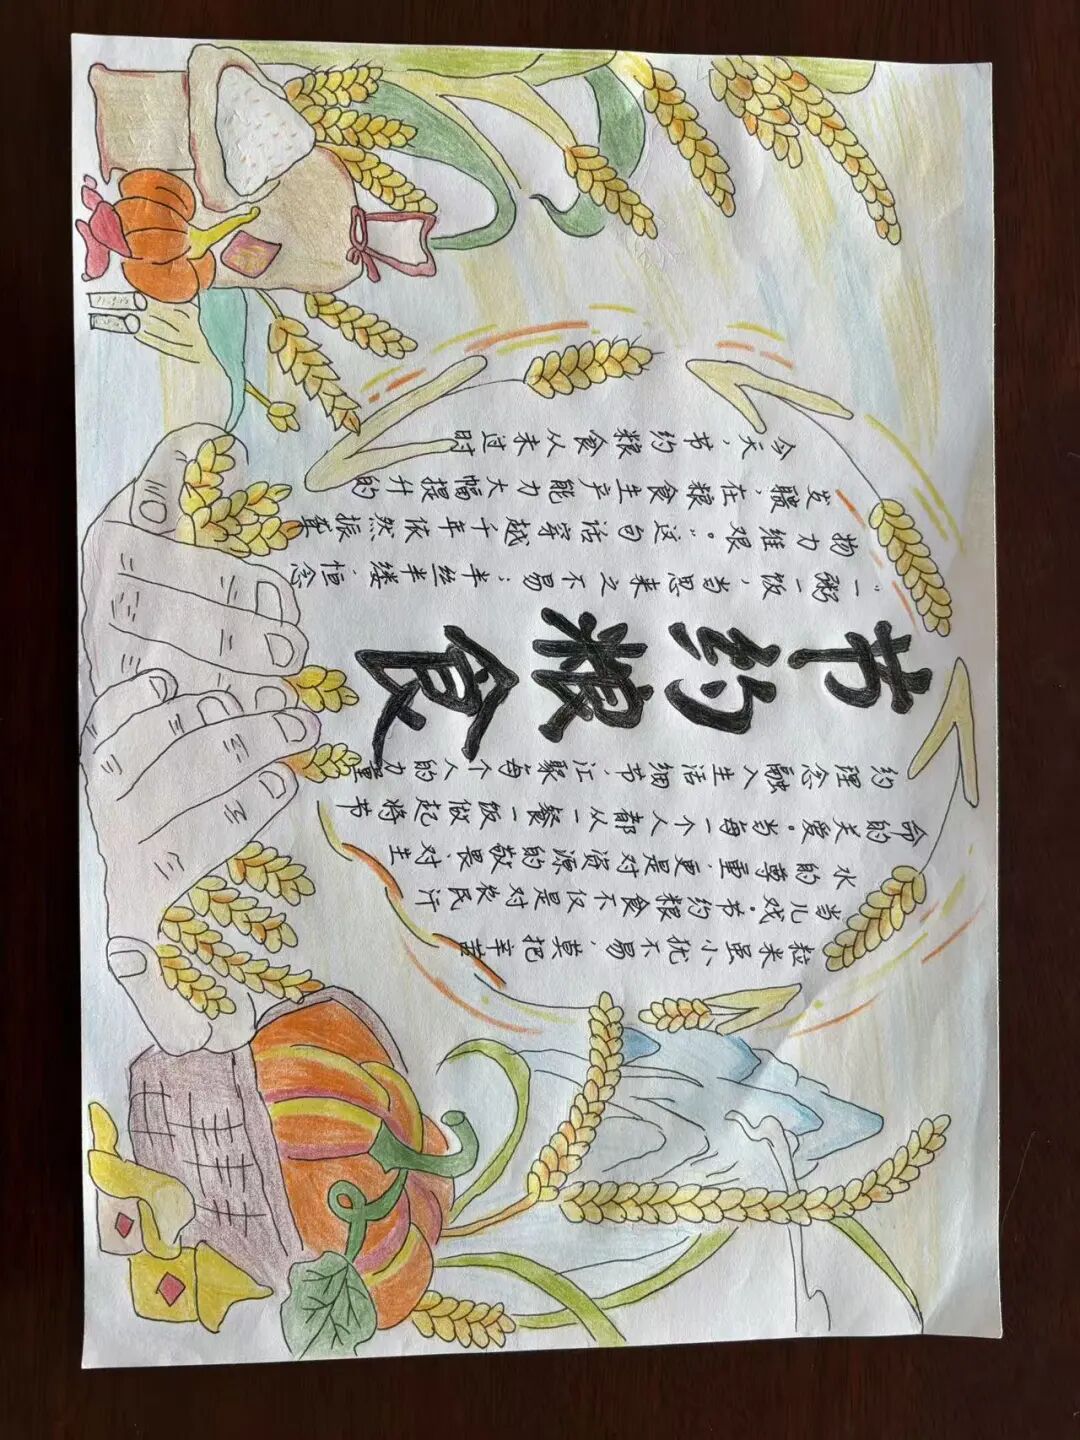 节约粮食
粒米虽小犹不易,莫把辛苦
当儿戏。节约粮食不仅是对农民汗
水的尊重,更是对资源的敬畏、对生
命的关爱。当每一个人都从一餐一饭做起将节
约理念融入生活细节,汇聚每个人的力量
“一粥一饭,当思来之不易;半丝半缕,恒念
物力维艰。”这句话穿越千年依然振聋
发聩,在粮食生产能力大幅提升的
今天,节约粮食从未过时